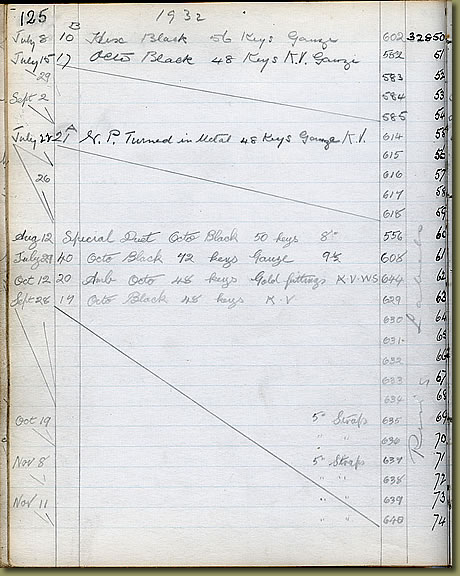 125 1932
B
July 8 10 Hex Black 56 Keys Gauze 602 32850
July 15 17 Octo Black 48 Keys K.V. Gauze 582 51
29 583 52
Sept 2 584 53
585 54
A
July 22 21 N. P. Turned in Metal 48 Keys Gauze K.V. 614 55
615 56
26 616 57
617 58
618 59
Aug 12 Special Duet Octo Black 50 keys 8" 556 60
July 29 40 Octo Black 72 keys Gauze 9½ 608 61
Oct 12 20 Amb Octo 48 keys Gold fittings K.V. WS 644 62
Sept 28 19 Octo Black 48 keys K.V 629 63
630 64
631 65
632 66
633 67
634 68
Oct 19 5" Straps 635 69
" " 636 70
Nov 8 5" Straps 637 71
" " 638 72
Nov 11 " " 639 73
" " 640 74